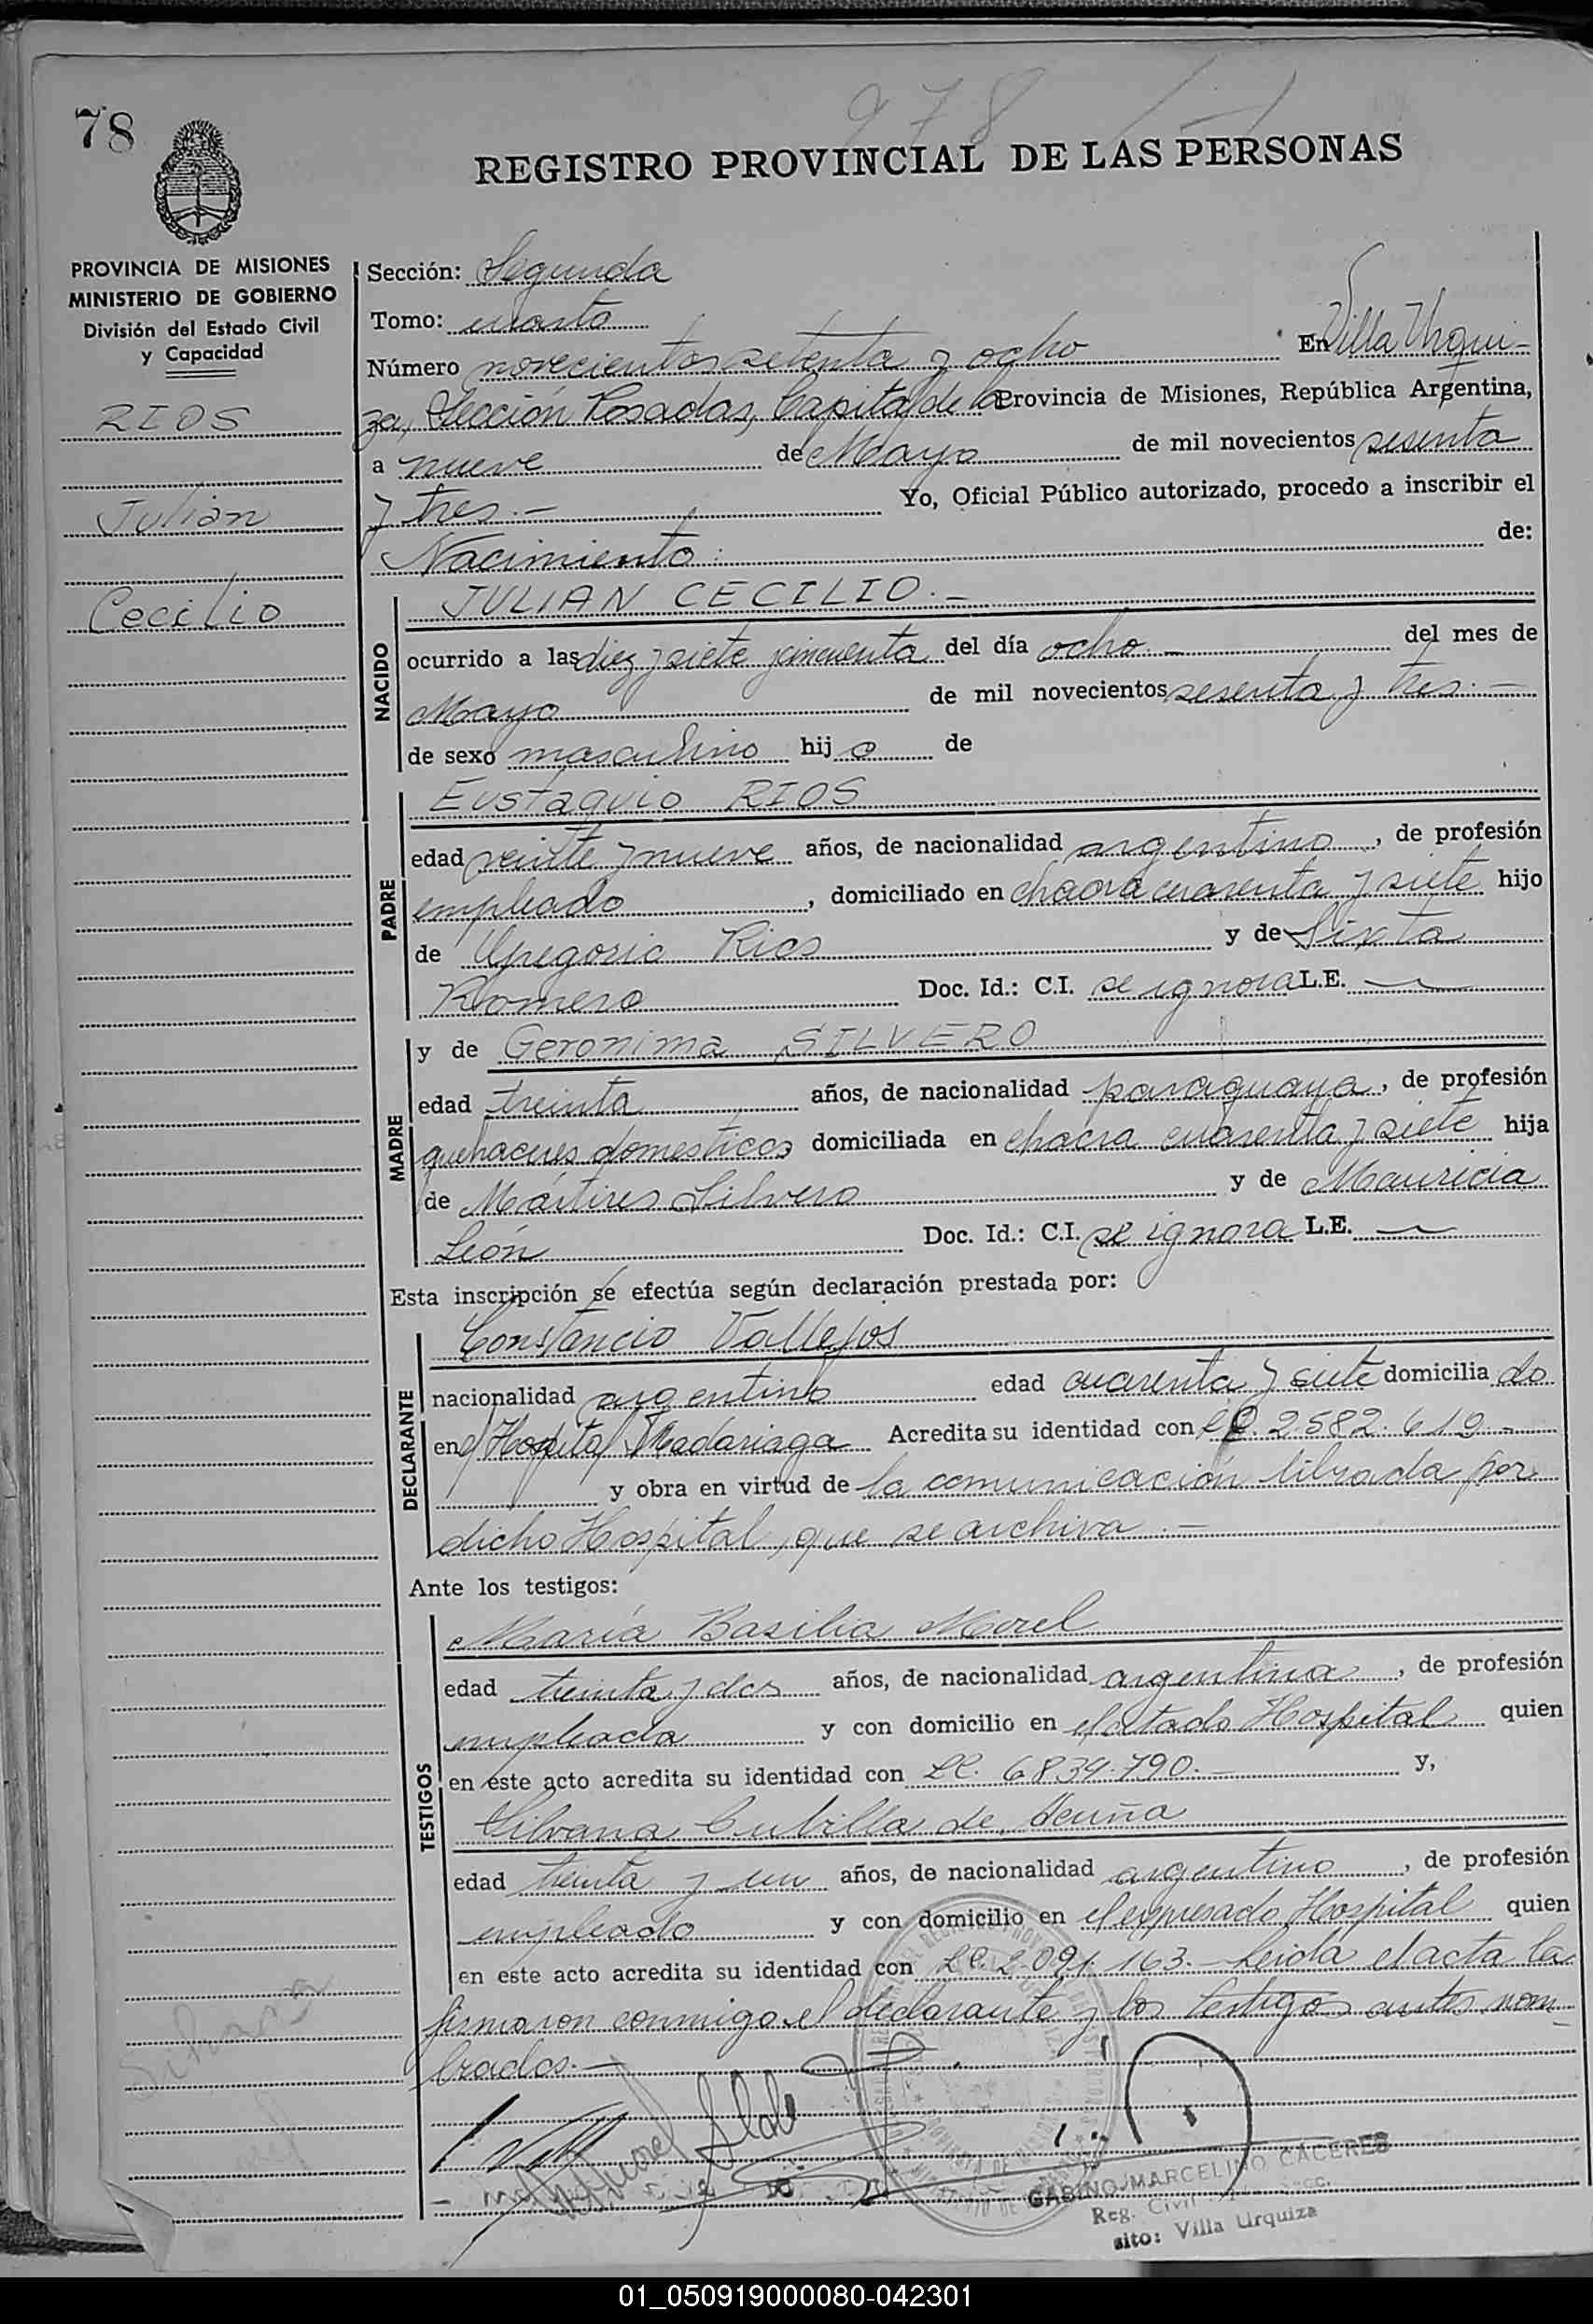 78
978
REGISTRO PROVINCIAL DE LAS PERSONAS
PROVINCIA DE MISIONES
MINISTERIO DE GOBIERNO
División del Estado Civil
y Capacidad
RIOS
Julián
Cecilio
Sección: Segunda
Tomo: cuarto
Número novecientos setenta y ocho En Villa Urqui-
za, Sección Posadas, Capital de la Provincia de Misiones, República Argentina,
a nueve de Mayo de mil novecientos sesenta
y tres.- Yo, Oficial Público autorizado, procedo a inscribir el
Nacimiento: de:
NACIDO
JULIAN CECILIO.-
ocurrido a las diez y siete y cincuenta del día ocho.- del mes de
Mayo de mil novecientos sesenta y tres.-
de sexo masculino hij o de
PADRE
Eustaquio RIOS
edad veinte y nueve años, de nacionalidad argentino, de profesión
empleado, domiciliado en chacra cuarenta y siete hijo
de Gregorio Rios y de Sixta
Romero Doc. Id.: C.I. se ignora L.E.
MADRE
y de Geronima SILVERO
edad treinta años, de nacionalidad paraguaya, de profesión
quehaceres domesticos domiciliada en chacra cuarenta y siete hija
de Mártires Silvero y de Mauricia
León Doc. Id.: C.I. se ignora L.E.
Esta inscripción se efectúa según declaración prestada por:
DECLARANTE
Constancio Vallejos
nacionalidad argentino edad cuarenta y siete domicilia do
en Hospital Madariaga Acredita su identidad con 2.582.619.-
y obra en virtud de la comunicación librada por
dicho Hospital, que se archiva.-
Ante los testigos:
TESTIGOS
María Basilia Morel
edad treinta y dos años, de nacionalidad argentina, de profesión
empleada y con domicilio en el citado Hospital quien
en este acto acredita su identidad con LC. 6.839.790.- y,
Silvana Cubilla de Acuña
edad treinta y un años, de nacionalidad argentino, de profesión
empleado y con domicilio en el expresado Hospital quien
en este acto acredita su identidad con LC. 2.091.163.- Leida el acta la
firmaron conmigo el declarante y los testigos antes nom-
brados.-
GABINO MARCELINO CACERES
Reg. Civil
sito: Villa Urquiza
01_050919000080-042301